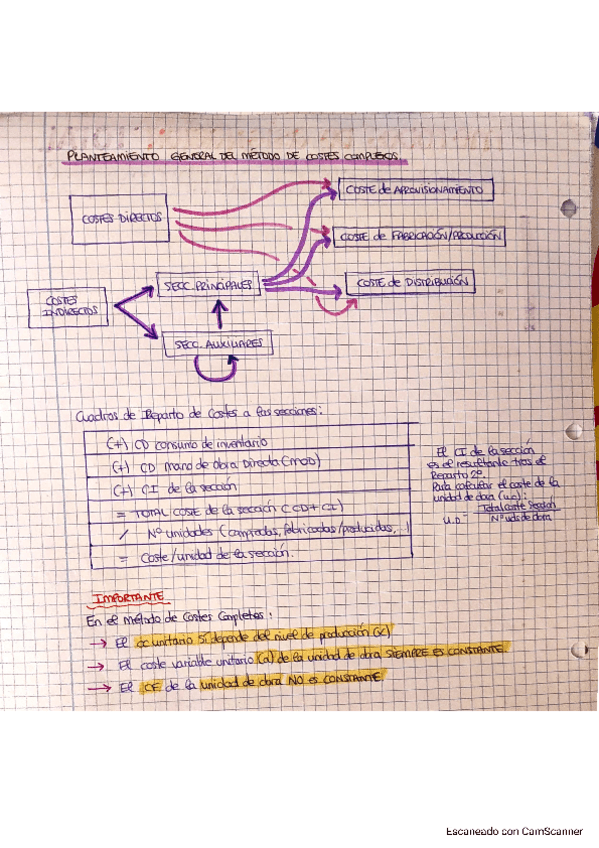 PLANTEAMIENTO GENERAL DEL MÉTODO DE COSTES COMPLETOS.
COSTES DIRECTOS
COSTE de APROVISIONAMIENTO
COSTE de FABRICACIÓN/PRODUCCIÓN
COSTES INDIRECTOS
SECC. PRINCIPALES
COSTE de DISTRIBUCIÓN
SECC. AUXILIARES
Cuadros de Reparto de Costes a las secciones:
(+) CD consumo de inventario
(+) CD mano de obra Directa (MOD)
(+) CI de la sección
= TOTAL coste de la sección (CD+CI)
/ Nº unidades (compradas, fabricadas/producidas, ..)
= Coste/unidad de la sección.
El CI de la sección
es el resultante tras el
Reparto 2º.
Para calcular el coste de la
unidad de obra (u.o):
u.o = Total coste Sección / Nº uds de obra
IMPORTANTE
En el método de Costes Completos:
→ El cc unitario Sº depende del nivel de producción (x)
→ El coste variable unitario (a) de la unidad de obra SIEMPRE ES CONSTANTE.
→ El CF de la unidad de obra NO es CONSTANTE.
Escaneado con CamScanner